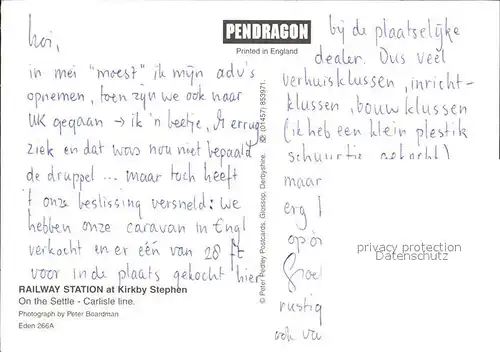 hoi,
in mei "moest" ik mijn adv's
opnemen, toen zijn we ook naar
UK gegaan → ik 'n beetje, erug
ziek en dat was nou niet bepaald
de druppel ... maar toch heeft
't onze beslissing versneld: we
hebben onze caravan in Engl
verkocht en er één van 28 ft
voor in de plaats gekocht hier
RAILWAY STATION at Kirkby Stephen
On the Settle - Carlisle line.
Photograph by Peter Boardman
Eden 266A
PENDRAGON
Printed in England
© Peter Pedley Postcards, Glossop, Derbyshire. ☏ (01457) 853971.
bij de plaatselijke
dealer. Dus veel
verhuisklussen, inricht-
klussen, bouw klussen
(ik heb een klein plestik
schuurtje gekocht)
maar
erg
op
rustig
ook va
privacy protection
Datenschutz